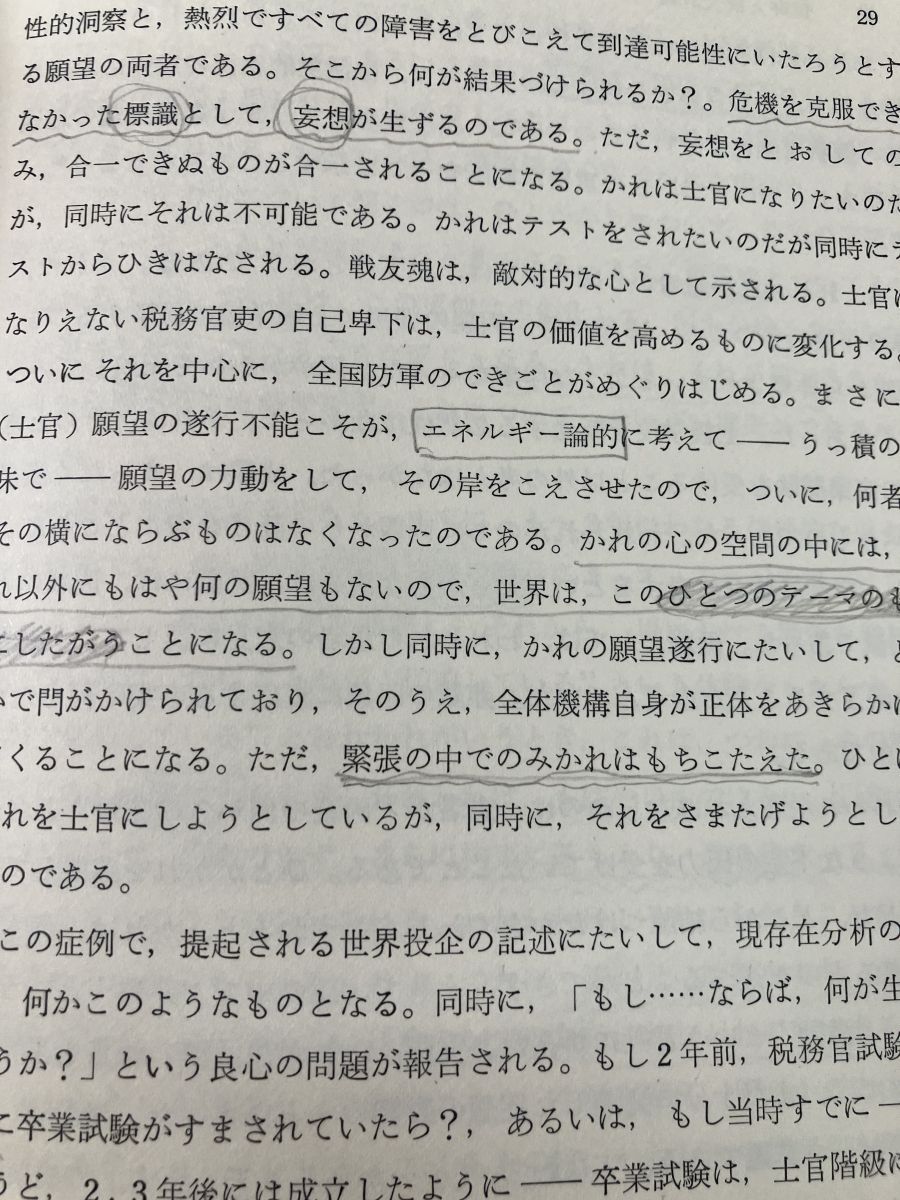 29
性的洞察と，熱烈ですべての障害をとびこえて到達可能性にいたろうとす
る願望の両者である。そこから何が結果づけられるか？。危機を克服でき
なかった標識として，妄想が生ずるのである。ただ，妄想をとおしての
み，合一できぬものが合一されることになる。かれは士官になりたいのだ
が，同時にそれは不可能である。かれはテストをされたいのだが同時にテ
ストからひきはなされる。戦友魂は，敵対的な心として示される。士官に
なりえない税務官吏の自己卑下は，士官の価値を高めるものに変化する。
ついに それを中心に，全国防軍のできごとがめぐりはじめる。まさに
（士官）願望の遂行不能こそが，エネルギー論的に考えて――うっ積の
味で――願望の力動をして，その岸をこえさせたので，ついに，何者
その横にならぶものはなくなったのである。かれの心の空間の中には，
れ以外にもはや何の願望もないので，世界は，このひとつのテーマのも
にしたがうことになる。しかし同時に，かれの願望遂行にたいして，
で閂がかけられており，そのうえ，全体機構自身が正体をあきらかに
くることになる。ただ，緊張の中でのみかれはもちこたえた。ひとは
れを士官にしようとしているが，同時に，それをさまたげようとし
のである。
この症例で，提起される世界投企の記述にたいして，現存在分析の
何かこのようなものとなる。同時に，「もし……ならば，何が生
うか？」という良心の問題が報告される。もし2年前，税務官試験
に卒業試験がすまされていたら？，あるいは，もし当時すでに―
うど，2，3年後には成立したように――卒業試験は，士官階級に